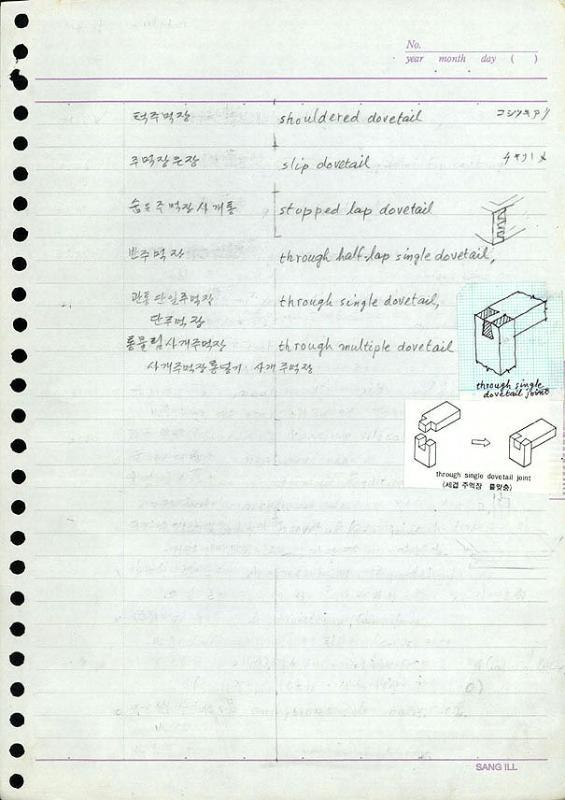 No.
year month day ( )
턱주먹장 shouldered dovetail
주먹장은장 slip dovetail
숨은주먹장사개통 stopped lap dovetail
반주먹장 through half-lap single dovetail,
관통단일주먹장 through single dovetail,
단주먹장
통물림사개주먹장 through multiple dovetail
사개주먹장통넣기 사개주먹장
through single
dovetail joint
through single dovetail joint
(세겹 주먹장 물맞춤)
SANG ILL